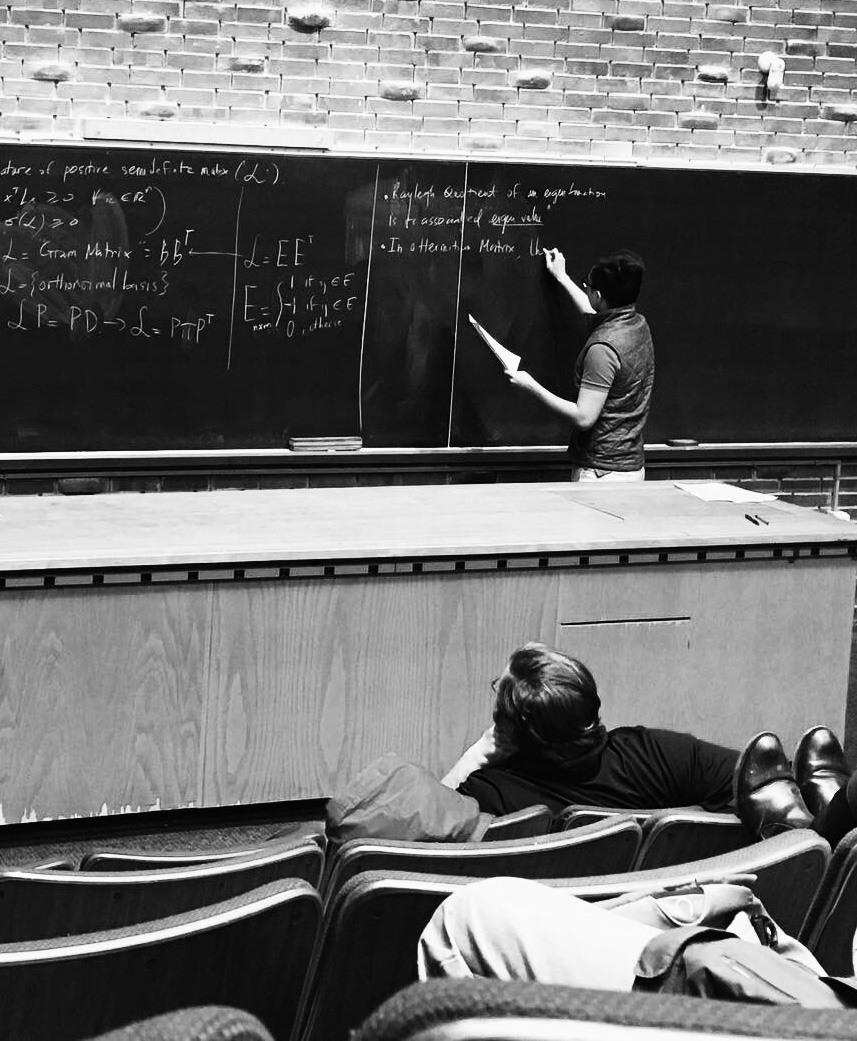 ature of positive semidefinite matrix (L.)
xᵀLx ≥ 0 ∀x ∈ ℝⁿ)
σ(L) ≥ 0
L = "Gram Matrix" = BBᵀ
L = {orthonormal basis}
LP = PD → L = PπPᵀ
L = EEᵀ
E = { 1 if ij ∈ E
-1 if ij ∈ E
n×m 0, otherwise
• Rayleigh Quotient of an eigenfunction
is its associated eigen value"
• In Matrix, the